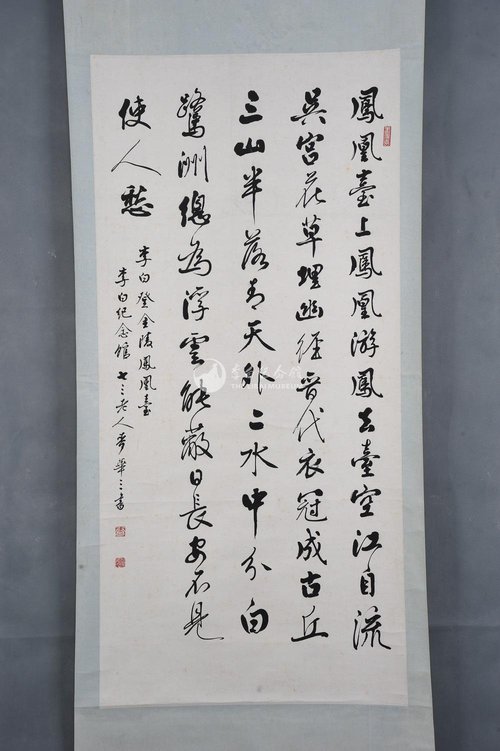 鳳凰臺上鳳凰游鳳去臺空江自流
吳宮花草埋幽徑晉代衣冠成古丘
三山半落青天外二水中分白
鷺洲總為浮雲能蔽日長安不見
使人愁
李白登金陵鳳凰臺
李白紀念館 七三老人 華三書
李白紀念館
THE LIBAI MUSEUM